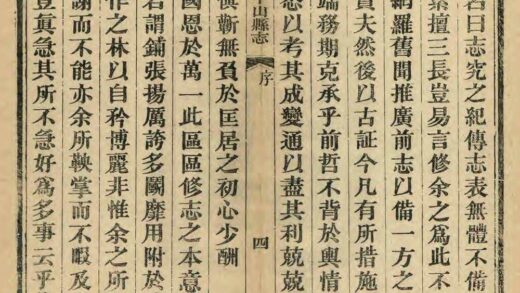 名曰志究之紀傳志表無體不備
素擅三長豈易言修余之爲此不
網羅舊聞推廣前志以備一方之
夫然後以古証今凡有所措施
端務期克承乎前哲不背於輿情
以考其成變通以盡其利兢兢
山縣志
序
四
愼無負於匡居之初心少酬
國恩於萬一此區區修志之本意
若謂鋪張揚厲誇多鬭靡用附於
作之林以自矜博麗非惟余之所
謝而不能亦余所鞅掌而不暇及
豈真急其所不急好爲多事云乎